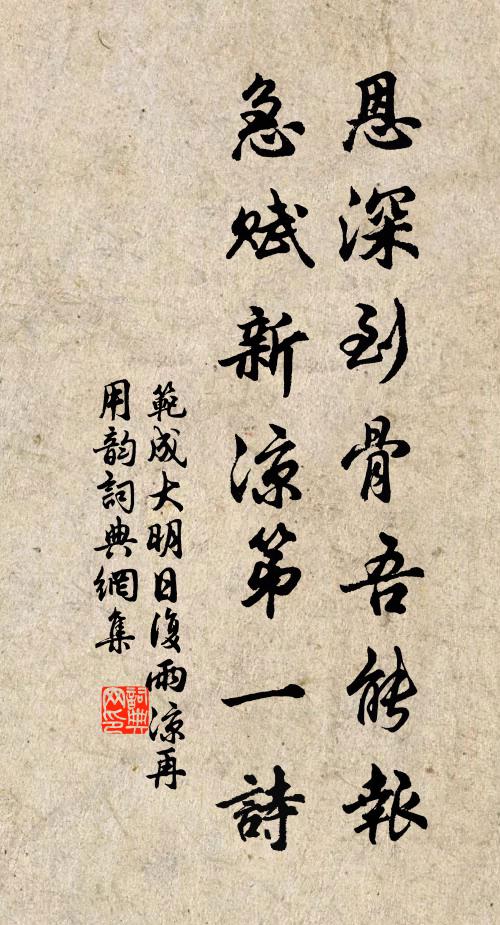 恩深到骨吾能報
急賦新涼第一詩
範成大明日復雨涼再
用韵詞典網集
詞典
网印